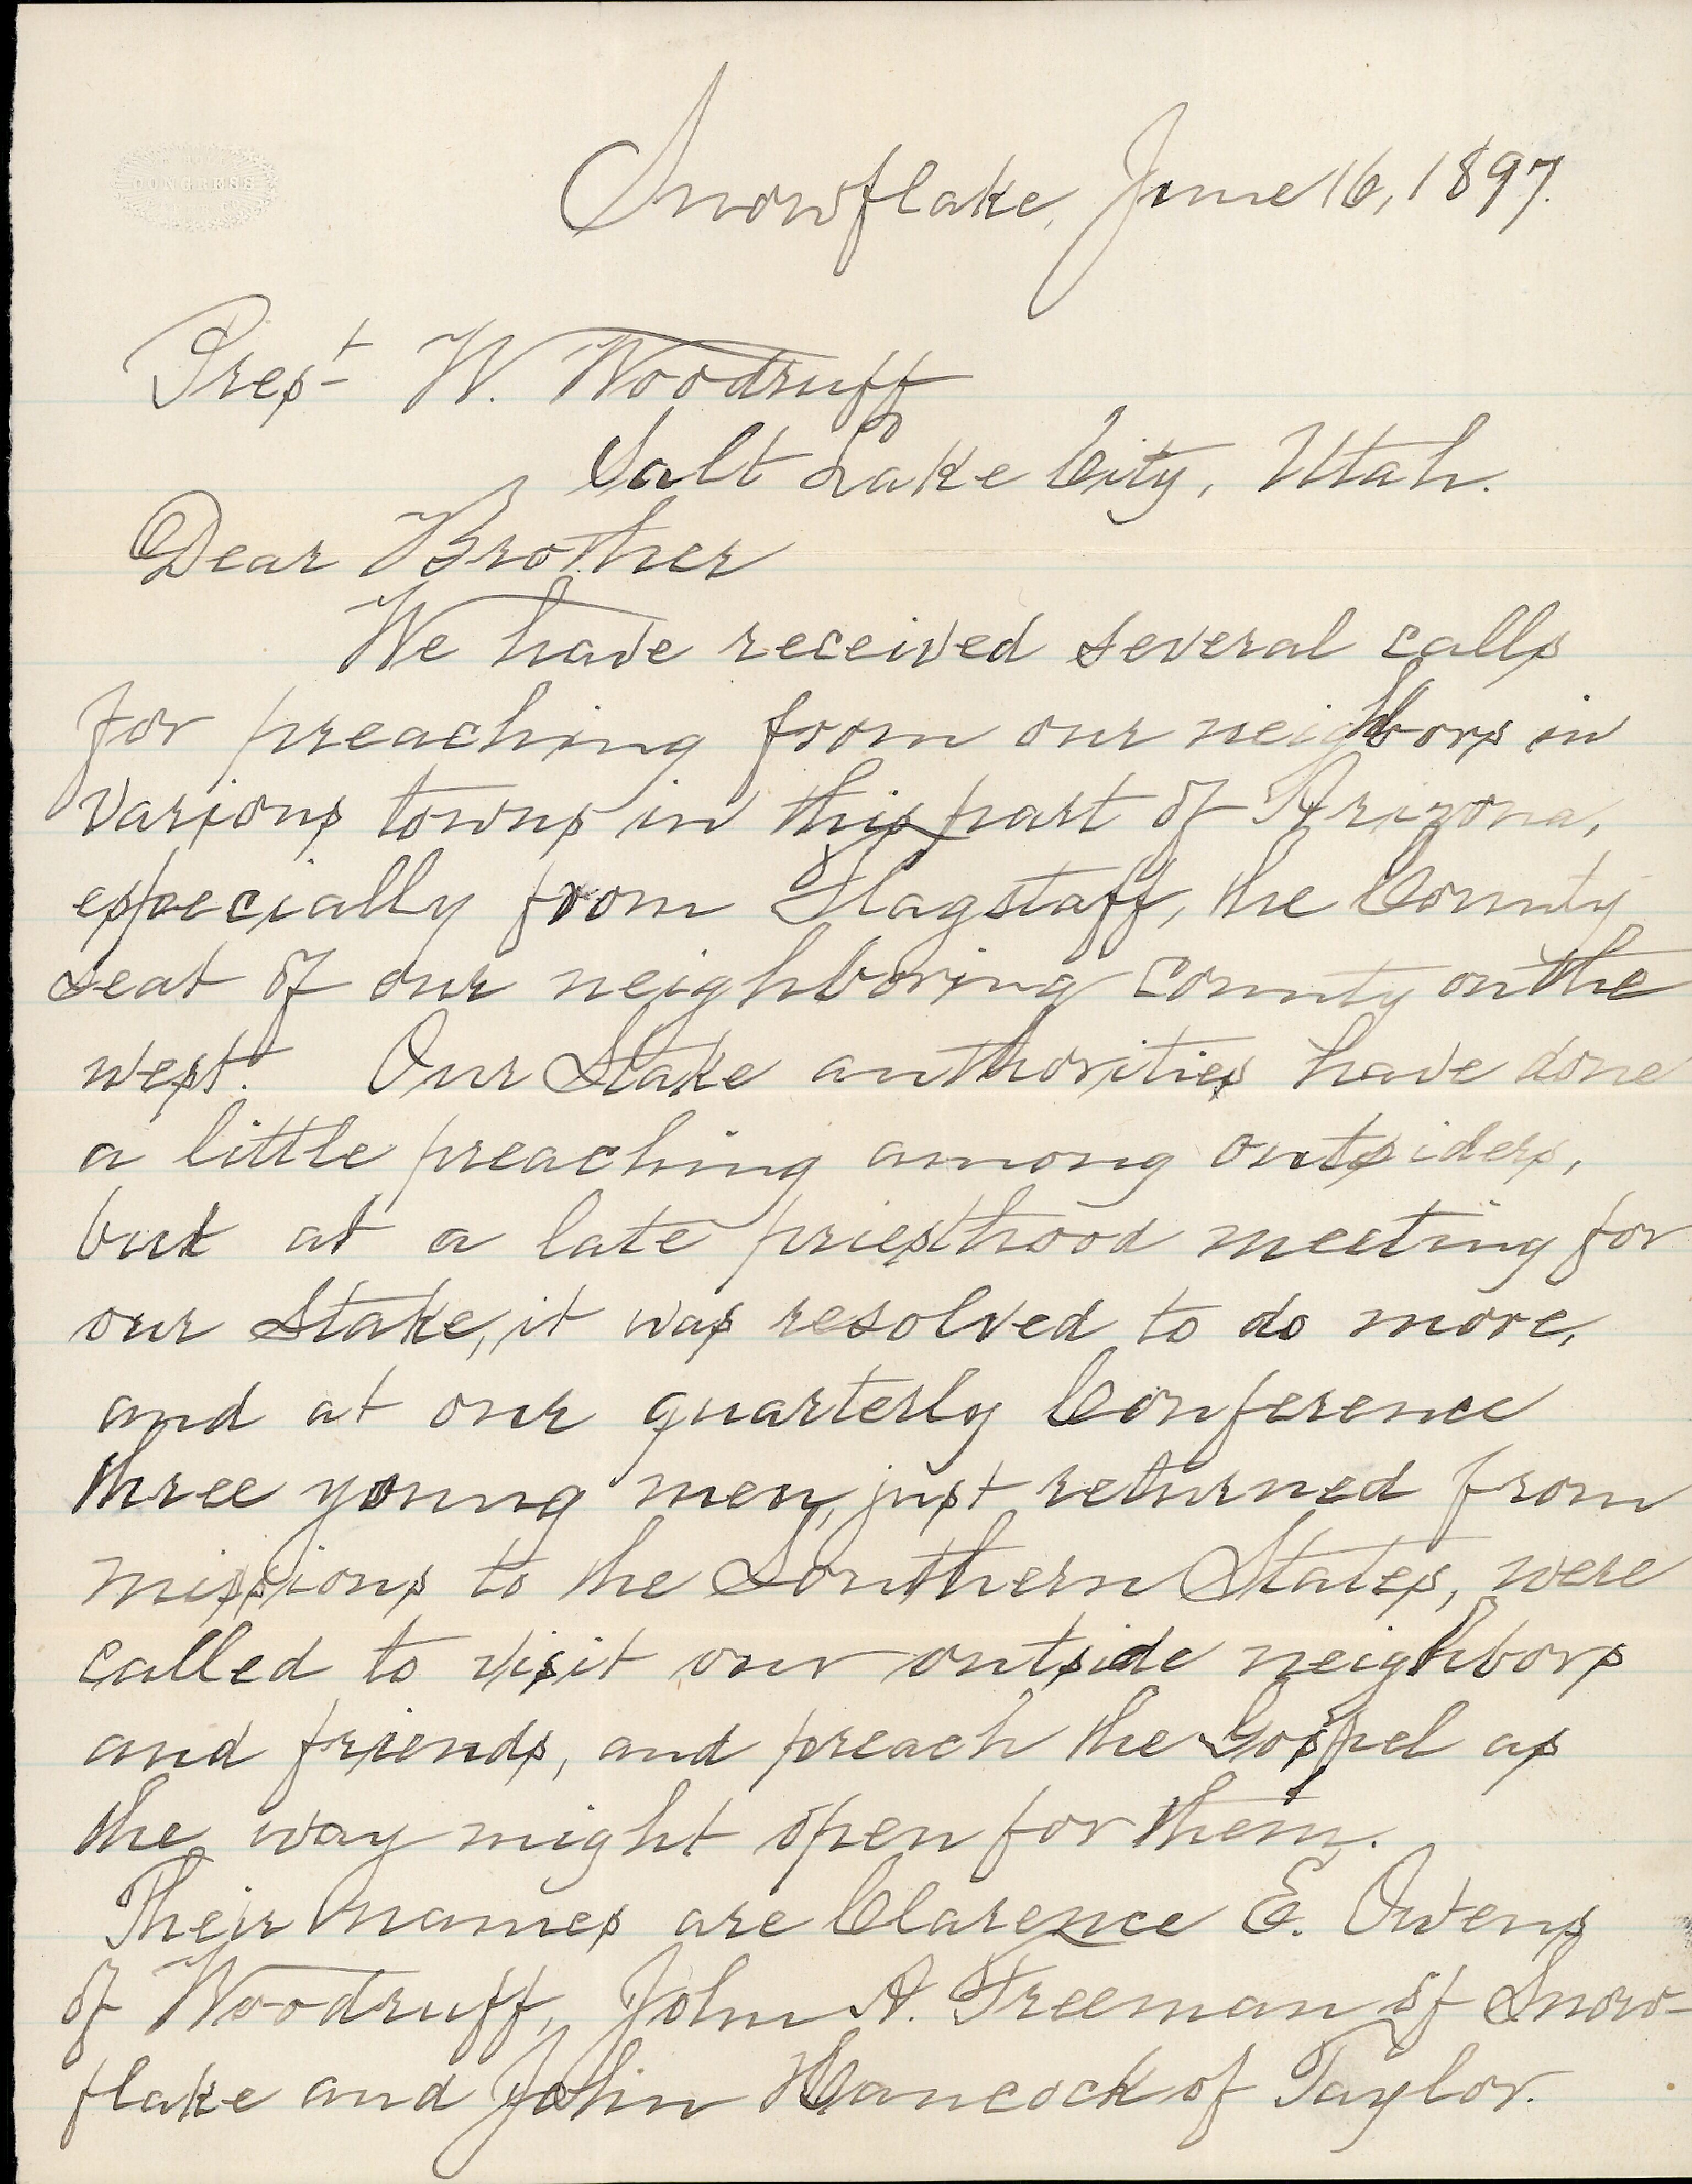 CONGRESS
Snowflake, June 16, 1897.
Prest W. Woodruff
Salt Lake City, Utah.
Dear Brother
We have received several calls
for preaching from our neighbors in
various towns in this part of Arizona,
especially from Flagstaff, the County
seat of our neighboring county on the
west. Our Stake authorities have done
a little preaching among outsiders,
but at a late priesthood meeting for
our Stake, it was resolved to do more,
and at our quarterly Conference
three young men, just returned from
missions to the Southern States, were
called to visit our outside neighbors
and friends, and preach the Gospel as
the way might open for them.
Their names are Clarence E. Owens
of Woodruff, John A. Freeman of Snow-
flake and John Hancock of Taylor.